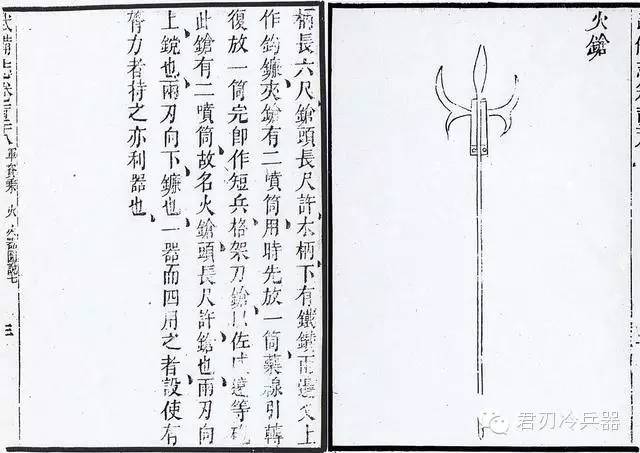 火鎗
柄長六尺鎗頭長尺許木柄下有鐵鑽兩邊叉上
作鈎鐮夾鎗有二噴筒用時先放一筒藥線引轉
復放一筒完即作短兵格架刀鎗以佐威遠等砲
此鎗有二噴筒故名火鎗頭長尺許鎗也兩刃向
上鎲也兩刃向下鐮也一器而四用之者設使有
膂力者持之亦利器也
武備志卷 軍資乘 火 火器圖說七 三
君刃冷兵器